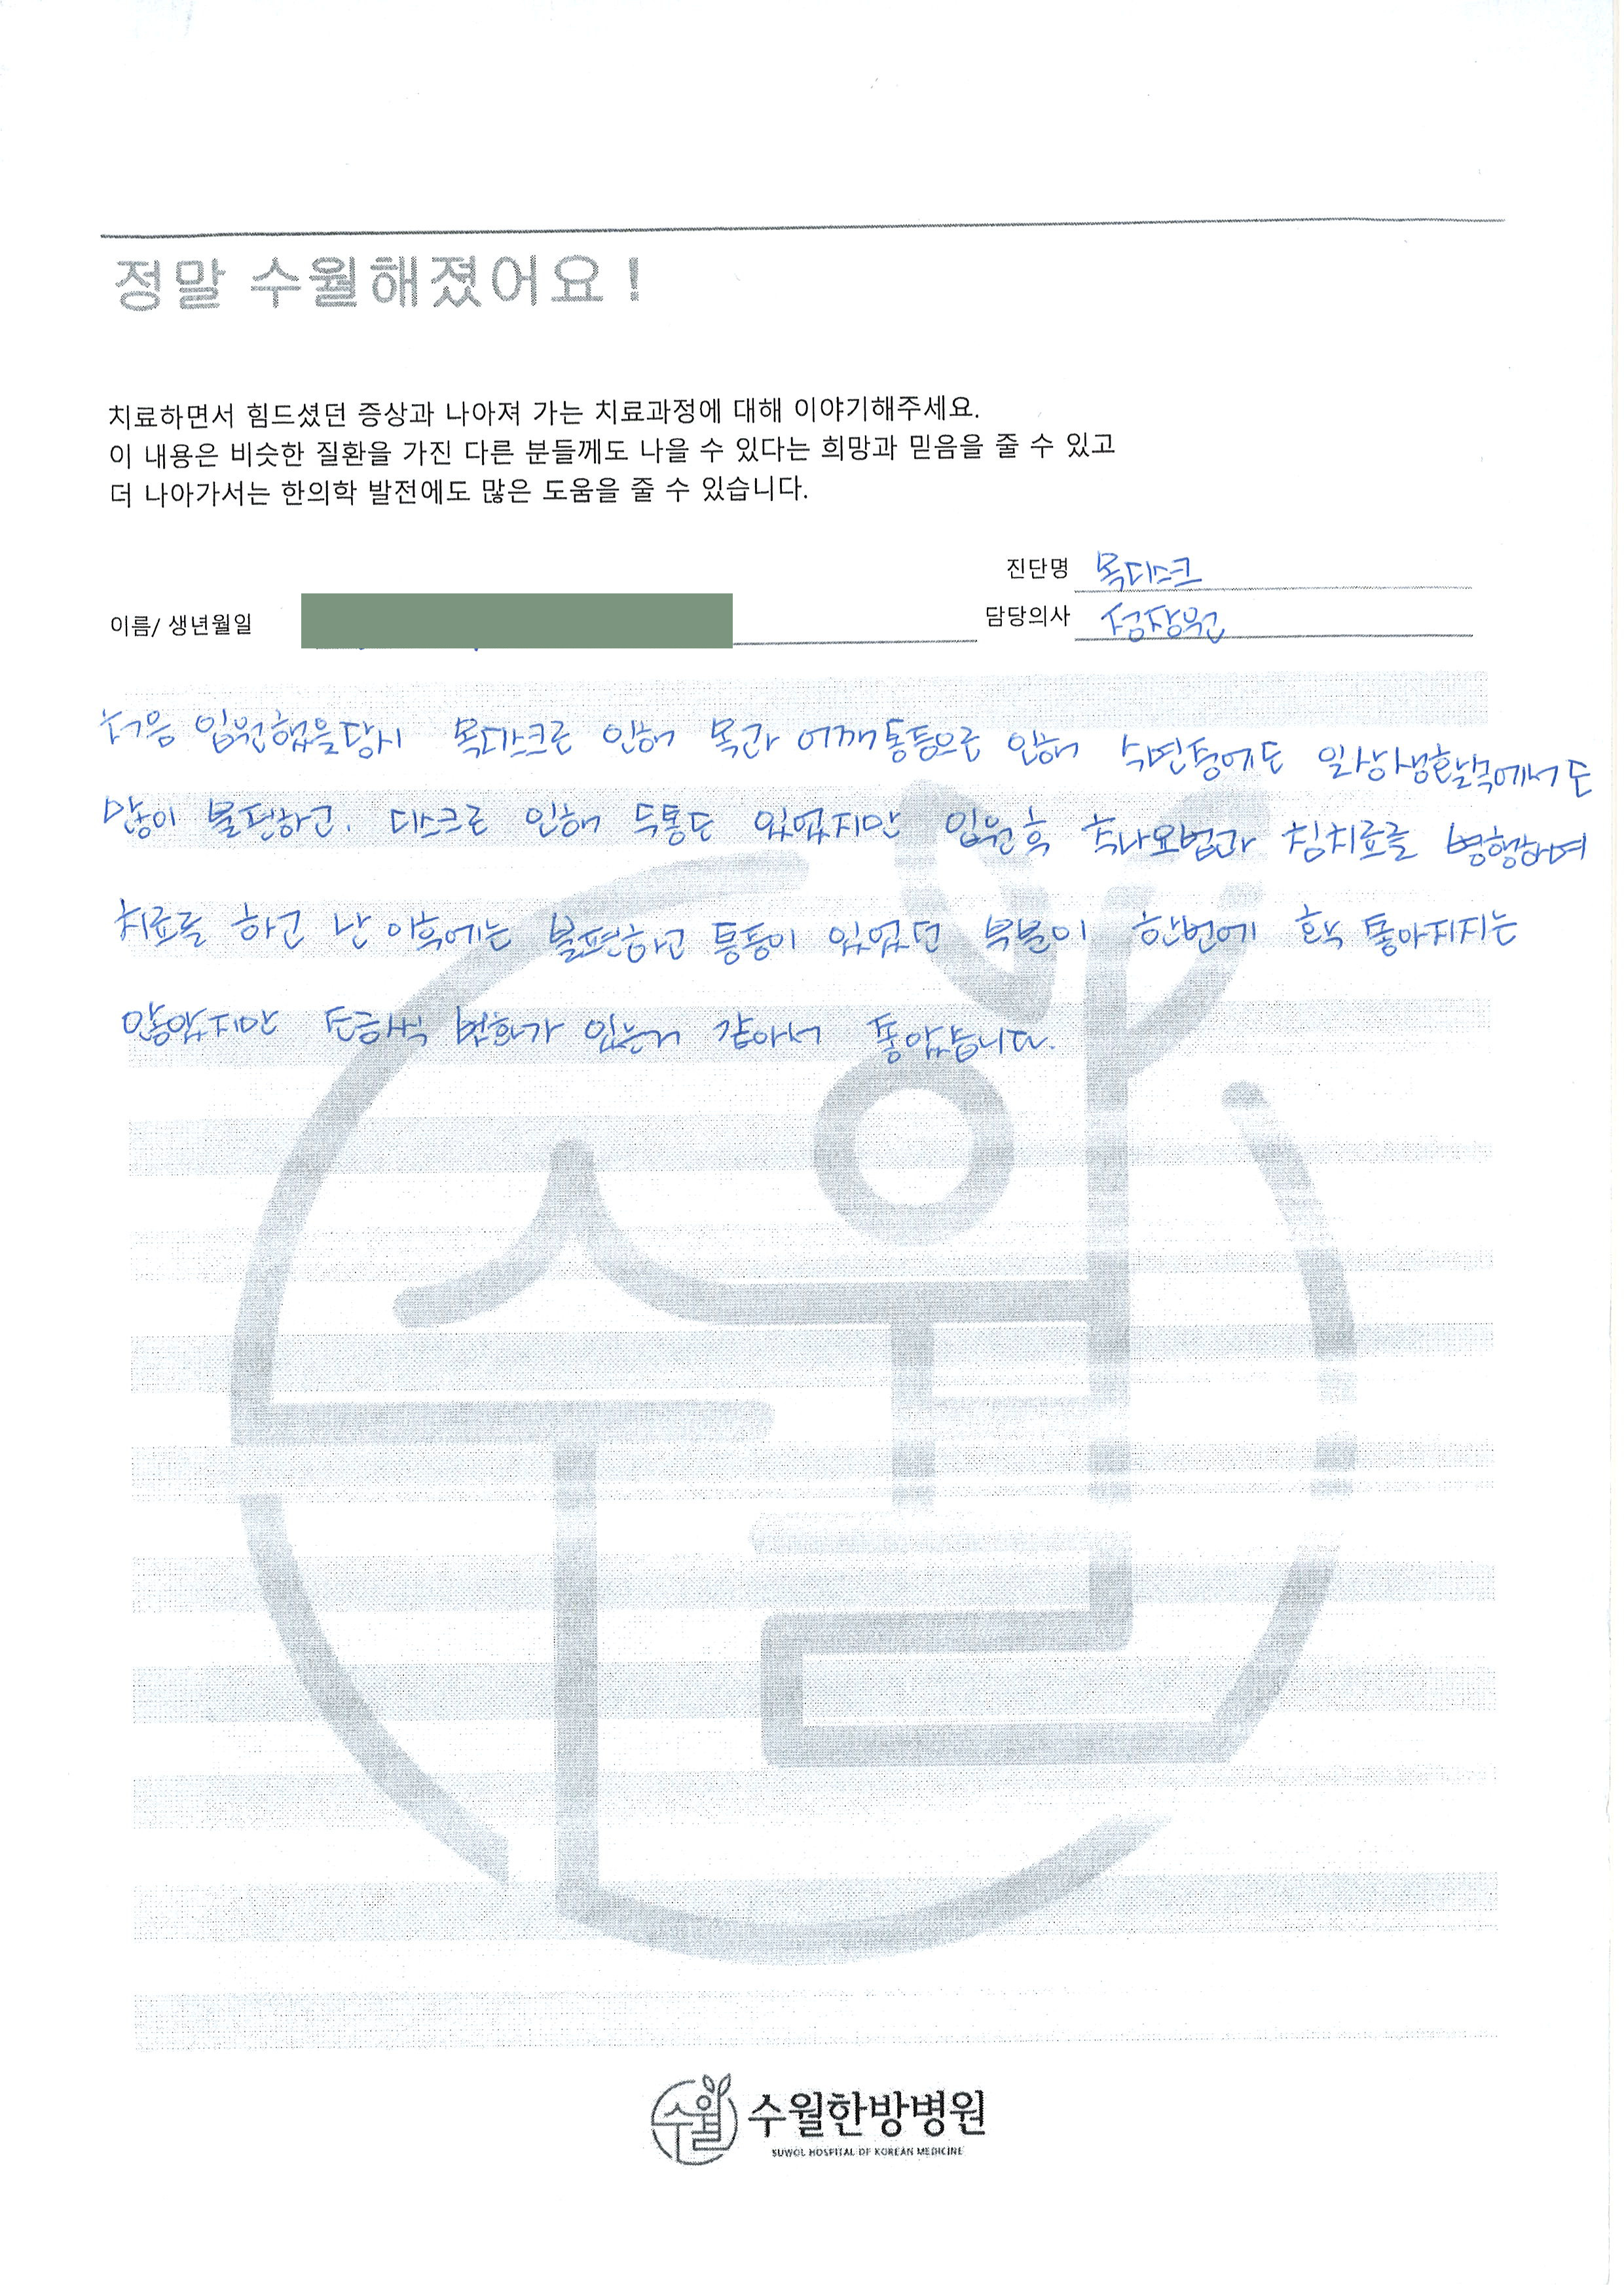 정말 수월해졌어요 !
치료하면서 힘드셨던 증상과 나아져 가는 치료과정에 대해 이야기해주세요.
이 내용은 비슷한 질환을 가진 다른 분들께도 나을 수 있다는 희망과 믿음을 줄 수 있고
더 나아가서는 한의학 발전에도 많은 도움을 줄 수 있습니다.
진단명 목디스크
이름/ 생년월일
담당의사
처음 입원했을당시 목디스크로 인해 목과 어깨통등으로 인해 수면중에도 일상생활속에서도
많이 불편하고. 디스크로 인해 두통도 있었지만 입원후 추나요법과 침치료를 병행하여
치료를 하고 난 이후에는 불편하고 통증이 있었던 부분이 한번에 확 좋아지지는
않았지만 조금씩 변화가 있는거 같아서 좋았습니다.
수월
수월한방병원
SUWOL HOSPITAL OF KOREAN MEDICINE